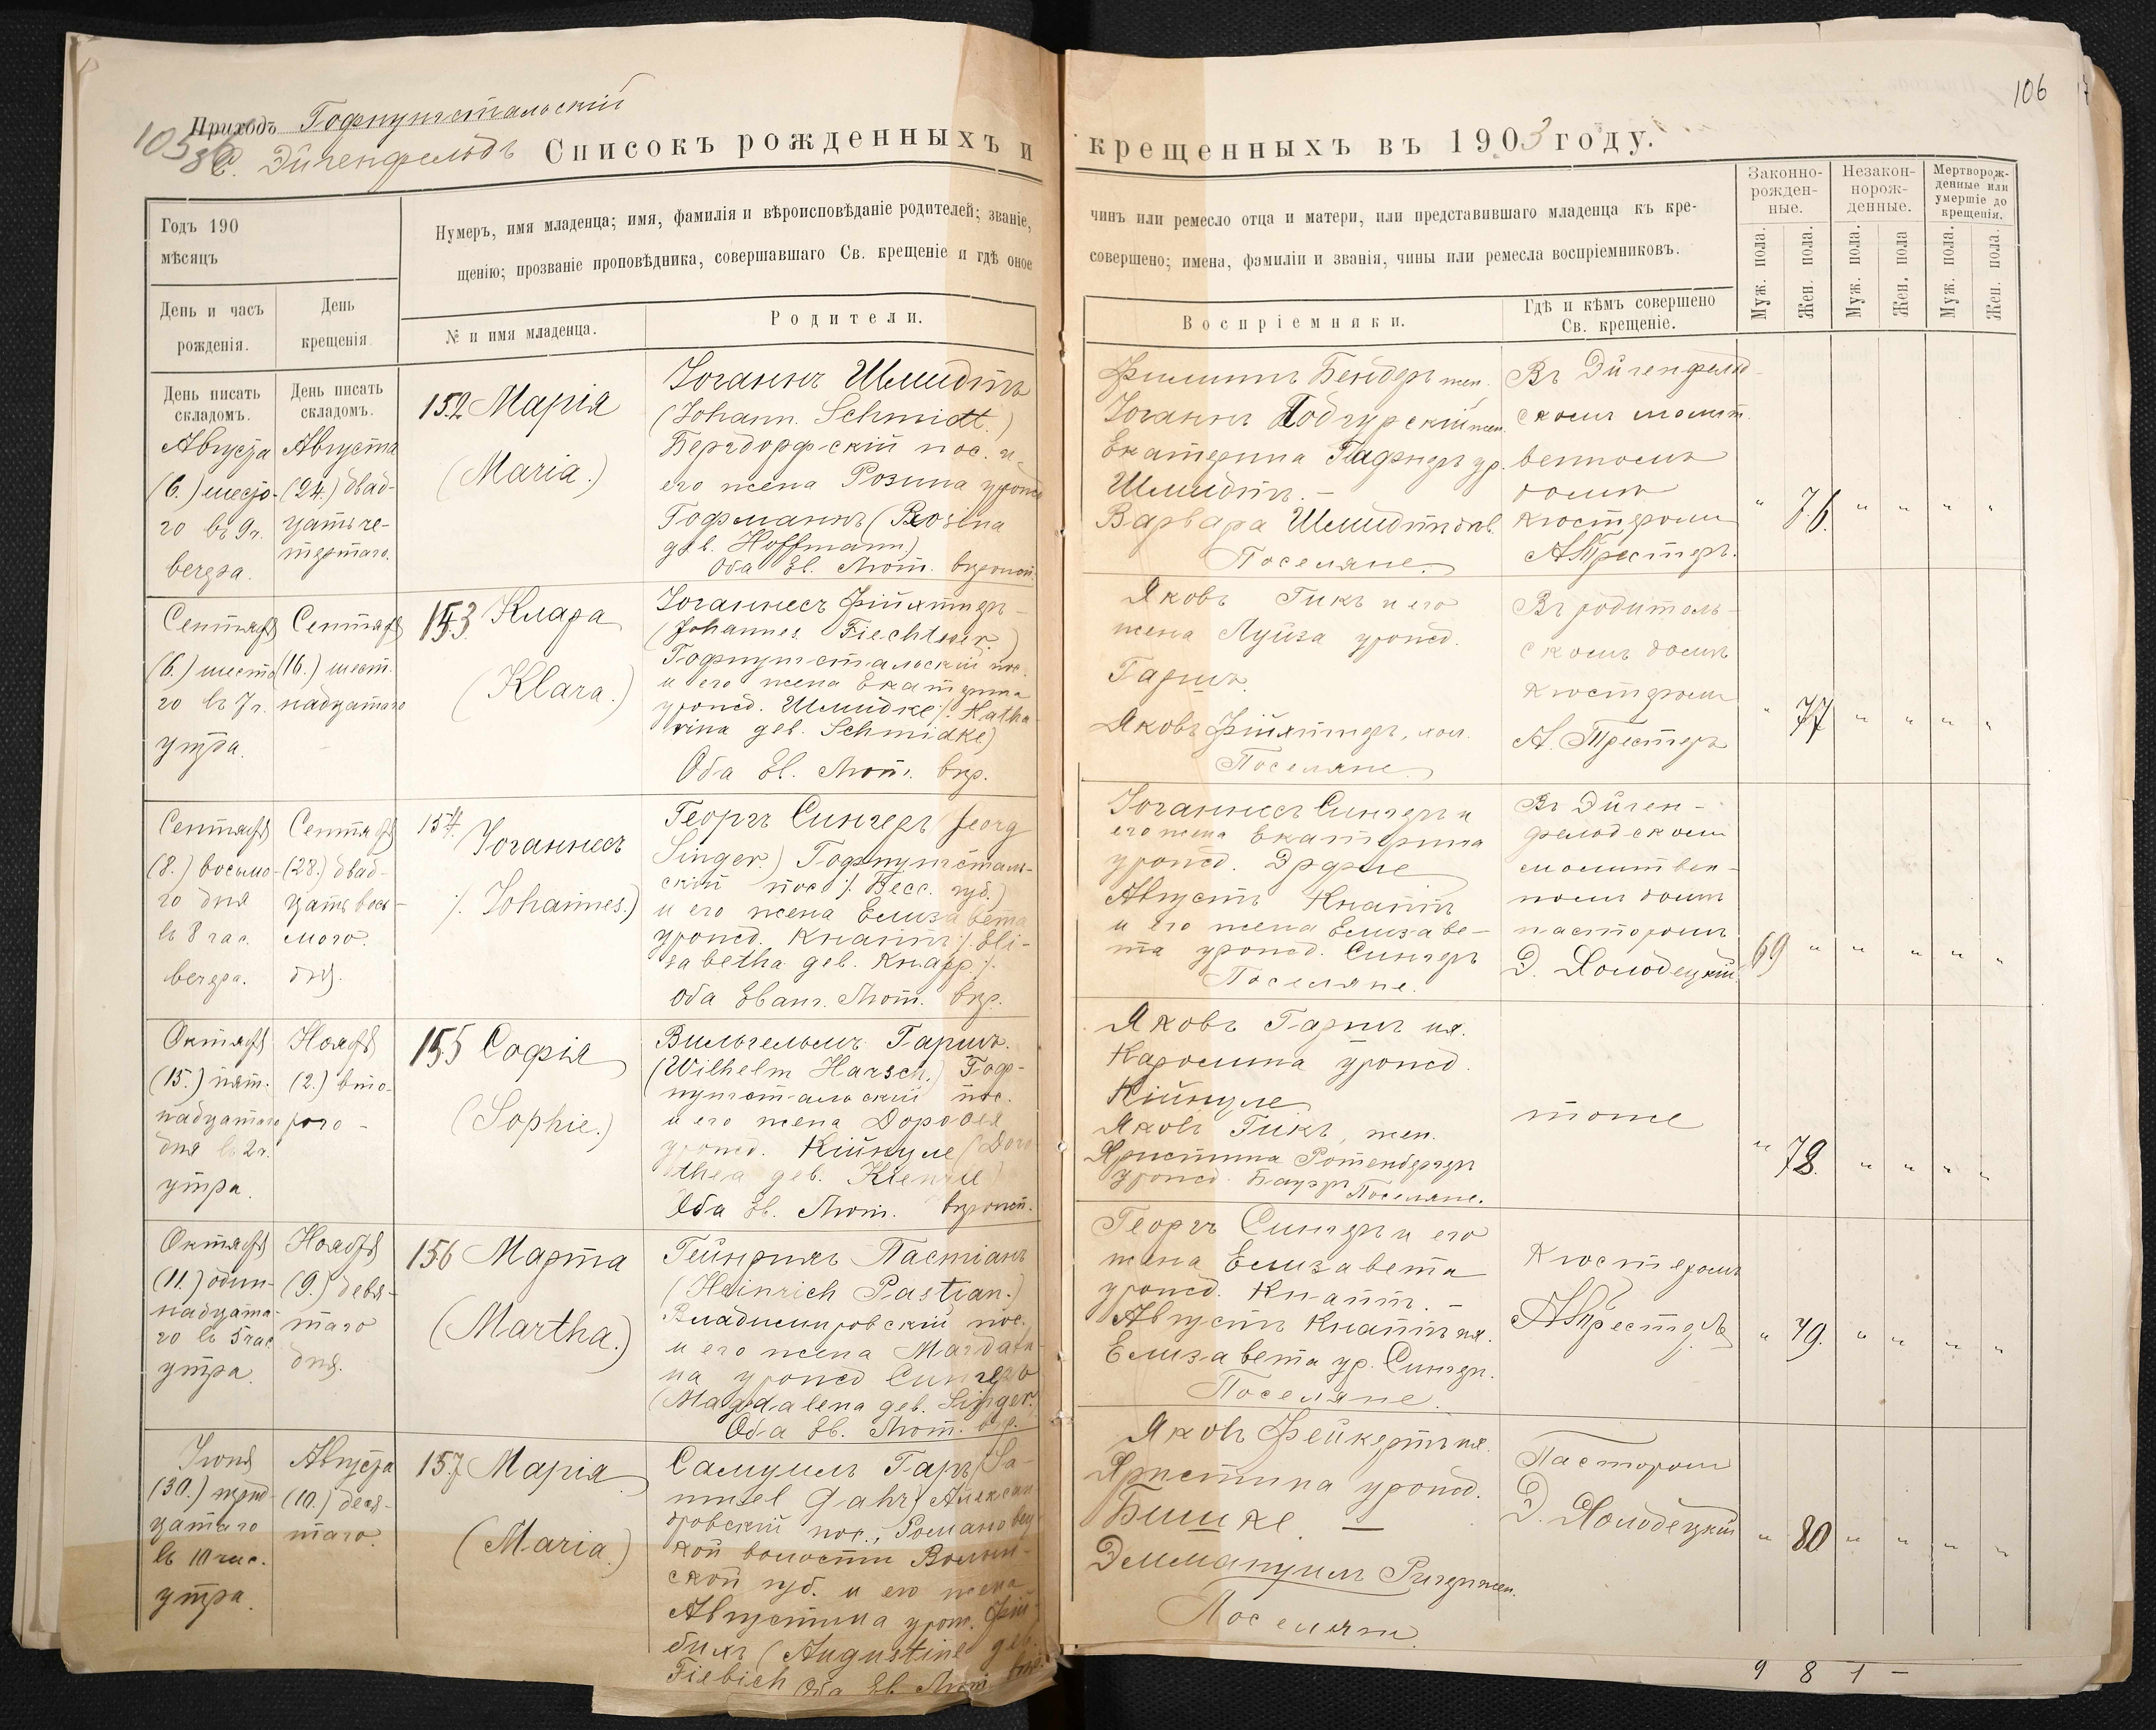 106
Приходъ Гофнунгстальскій
С. Эйгенфельдъ
Списокъ рожденныхъ и крещенныхъ въ 1903 году.
Годъ 190
мѣсяцъ
День и часъ
рожденія.
День
крещенія.
Нумеръ, имя младенца; имя, фамилія и вѣроисповѣданіе родителей; званіе,
щенію; прозваніе проповѣдника, совершавшаго Св. крещеніе и гдѣ оное
№ и имя младенца.
Родители.
чинъ или ремесло отца и матери, или представившаго младенца къ кре-
совершено; имена, фамиліи и званія, чины или ремесла воспріемниковъ.
Воспріемники.
Гдѣ и кѣмъ совершено
Св. крещеніе.
Законно-
рожден-
ные.
Незакон-
норож-
денные.
Мертворож-
денные или
умершіе до
крещенія.
Муж. пола.
Жен. пола.
Муж. пола.
Жен. пола
Муж. пола.
Жен. пола.
День писать
складомъ.
День писать
складомъ.
Августа
(6.) шесто-
го въ 9 ч.
вечера.
Августа
(24.) двад-
цать че-
тертаго.
152 Марія
(Maria.)
Іоганнъ Шмидтъ
(Johann Schmidt.)
Бергдорфскій пос. и
его жена Розина урожд
Гофманнъ (Rosina
geb. Hoffmann.)
Оба Ев. Лют. вѣроисп.
Филиппъ Бендеръ жен.
Іоганнъ Подгурскій жен.
Екатерина ур.
Шмидтъ. -
Варвара Шмидтъ
Поселяне.
Въ Эйгенфельд-
скомъ молит-
венномъ
домѣ
кюстеромъ
А. Трестеръ.
" 76. " " " "
Сентября
(6.) шесто
го въ 7 ч.
утра.
Сентября
(16.) шест.
надцатаго
153. Клара
(Klara.)
Іоганнесъ Фійхтнеръ
(Johannes Fiechtner.)
Гофнунгстальскій пос.
и его жена Екатерина
урожд. Шмидке /. Katha-
rina geb. Schmidke)
Оба Ев. Лют. вѣр.
Яковъ Гикъ и его
жена Луиза урожд.
Гаршъ.
Яковъ Фійхтнеръ, хол.
Поселяне.
Въ родитель-
скомъ домѣ
кюстеромъ
А. Трестеръ
" 77 " " " "
Сентября
(8.) восьмо-
го дня
въ 8 час.
вечера.
Сентября
(28.) двад-
цать вось-
мого.
дня.
154. Іоганнесъ
/. Johannes.)
Георгъ Сингеръ (Georg
Singer.) Гофнунгсталь-
скій пос. /. Бесс. губ.)
и его жена Елизавета
урожд. Кнаппъ /. Eli-
sabetha geb. Knapp /.
Оба Еванг. Лют. вѣр.
Іоганнесъ Сингеръ и
его жена Екатерина
урожд. Эрфле
Августъ Кнаппъ
и его жена Елизаве-
та урожд. Сингеръ
Поселяне.
Въ Эйген-
фельдскомъ
молитвен-
номъ домѣ
пасторомъ
Э. Холодецкій.
69 " " " " "
Октября
(15.) пят.
надцатаго
дня въ 2 ч.
утра.
Ноября
(2.) вто-
рого -
155 Софія
(Sophie.)
Вильгельмъ Гаршъ.
(Wilhelm Harsch.) Гоф-
нунгстальскій пос.
и его жена Доровея
урожд. Кійнцле (Doro-
thea geb. Kienzle)
Оба Ев. Лют. вѣроисп.
Яковъ Гаршъ
Каролина урожд.
Кійнцле
Яковъ Гикъ, жен.
Христина Ротенбергеръ
урожд. Бауэръ Поселяне.
тоже
" 78. " " " "
Октября
(11.) один-
надцата-
го въ 5 час
утра.
Ноября
(9.) девя-
таго
дня.
156 Марта
(Martha.)
Гейнрихъ Пастіанъ
(Heinrich Pastian.)
Владимировскій пос.
и его жена Магдале-
на урожд Сингеръ
(Magdalena geb. Singer.)
Оба Ев. Лют. вѣр.
Георгъ Сингеръ и его
жена Елизавета
урожд. Кнаппъ. -
Августъ Кнаппъ
Елизавета ур. Сингеръ.
Поселяне.
Кюстеромъ
А. Трестеръ
" 79. " " " "
Іюня
(30.) трид-
цатаго
въ 10 час.
утра.
Августа
(10.) деся-
таго.
157 Марія
(Maria.)
Самуилъ Гаръ (Sa-
muel Gahr) Алексан-
дровскій пос., Романовец
кой волости Волын-
ской губ. и его жена
Августина урож. Фи-
бихъ (Augustine geb.
Fiebich Оба Ев. Лют. вѣр.
Яковъ Фейкертъ
Христина урожд.
Бишке. -
Эммануилъ Ригеръ жен.
Поселяне.
Пасторомъ
Э. Холодецкій
" 80 " " " "
9 8 1 -